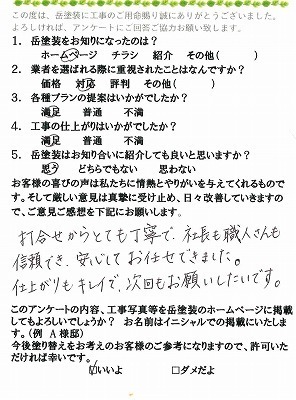 この度は、岳塗装に工事のご用命賜り誠にありがとうございました。
よろしければ、アンケートにご回答ご協力お願い致します。
1．岳塗装をお知りになったのは？
ホームページ　チラシ　紹介　その他(　　　)
2．業者を選ばれる際に重視されたことはなんですか？
価格　対応　評判　その他(　　　)
3．各種プランの提案はいかがでしたか？
満足　普通　不満
4．工事の仕上がりはいかがでしたか？
満足　普通　不満
5．岳塗装はお知り合いに紹介しても良いと思いますか？
思う　どちらでもない　思わない
お客様の喜びの声は私たちに情熱とやりがいを与えてくれるものです。
そして厳しい意見は真摯に受け止め、日々改善していきますので、
ご意見ご感想を下記にお願いします。
打合せからとても丁寧で、社長も職人さんも
信頼でき、安心してお任せできました。
仕上がりもキレイで、次回もお願いしたいです。
このアンケートの内容、工事写真等を岳塗装のホームページに掲載
してもよろしいでしょうか？　お名前はイニシャルでの掲載にいたしま
す。（例　A様邸）
今後塗り替えをお考えのお客様のご参考になりますので、許可いた
だければ幸いです。
☑いいよ　□ダメだよ